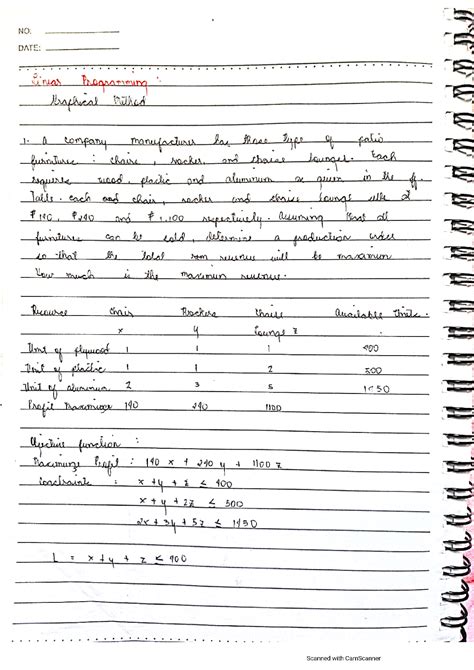 NO.
DATE:
Linear Programming :
Graphical Method
1. A company manufactures has three type of patio
furnitures : chairs, rocker, and chaise lounges. Each
requires wood, plastic and aluminum as given in the ff.
Table. each chair, rocker and chaise lounge sells
₱ 240 and ₱ 1,100 respectively. Assuming that all
furniture can be sold, determine a production order
so that the total revenue will be maximum
How much is the maximum revenue.
Resource Chair Rockers Chaise Available Units.
x y Lounge z
Unit of plywood 1 1 1 400
Unit of plastic 1 1 2 500
Unit of aluminum 2 3 5 1450
Profit 240 1100
Objective function :
Maximize Profit : x + 240 y + 1100 z
Constraints : x + y + z ≤ 400
x + y + 2z ≤ 500
2x + 3y + 5z ≤ 1450
L = x + y + z ≤ 400
Scanned with CamScanner